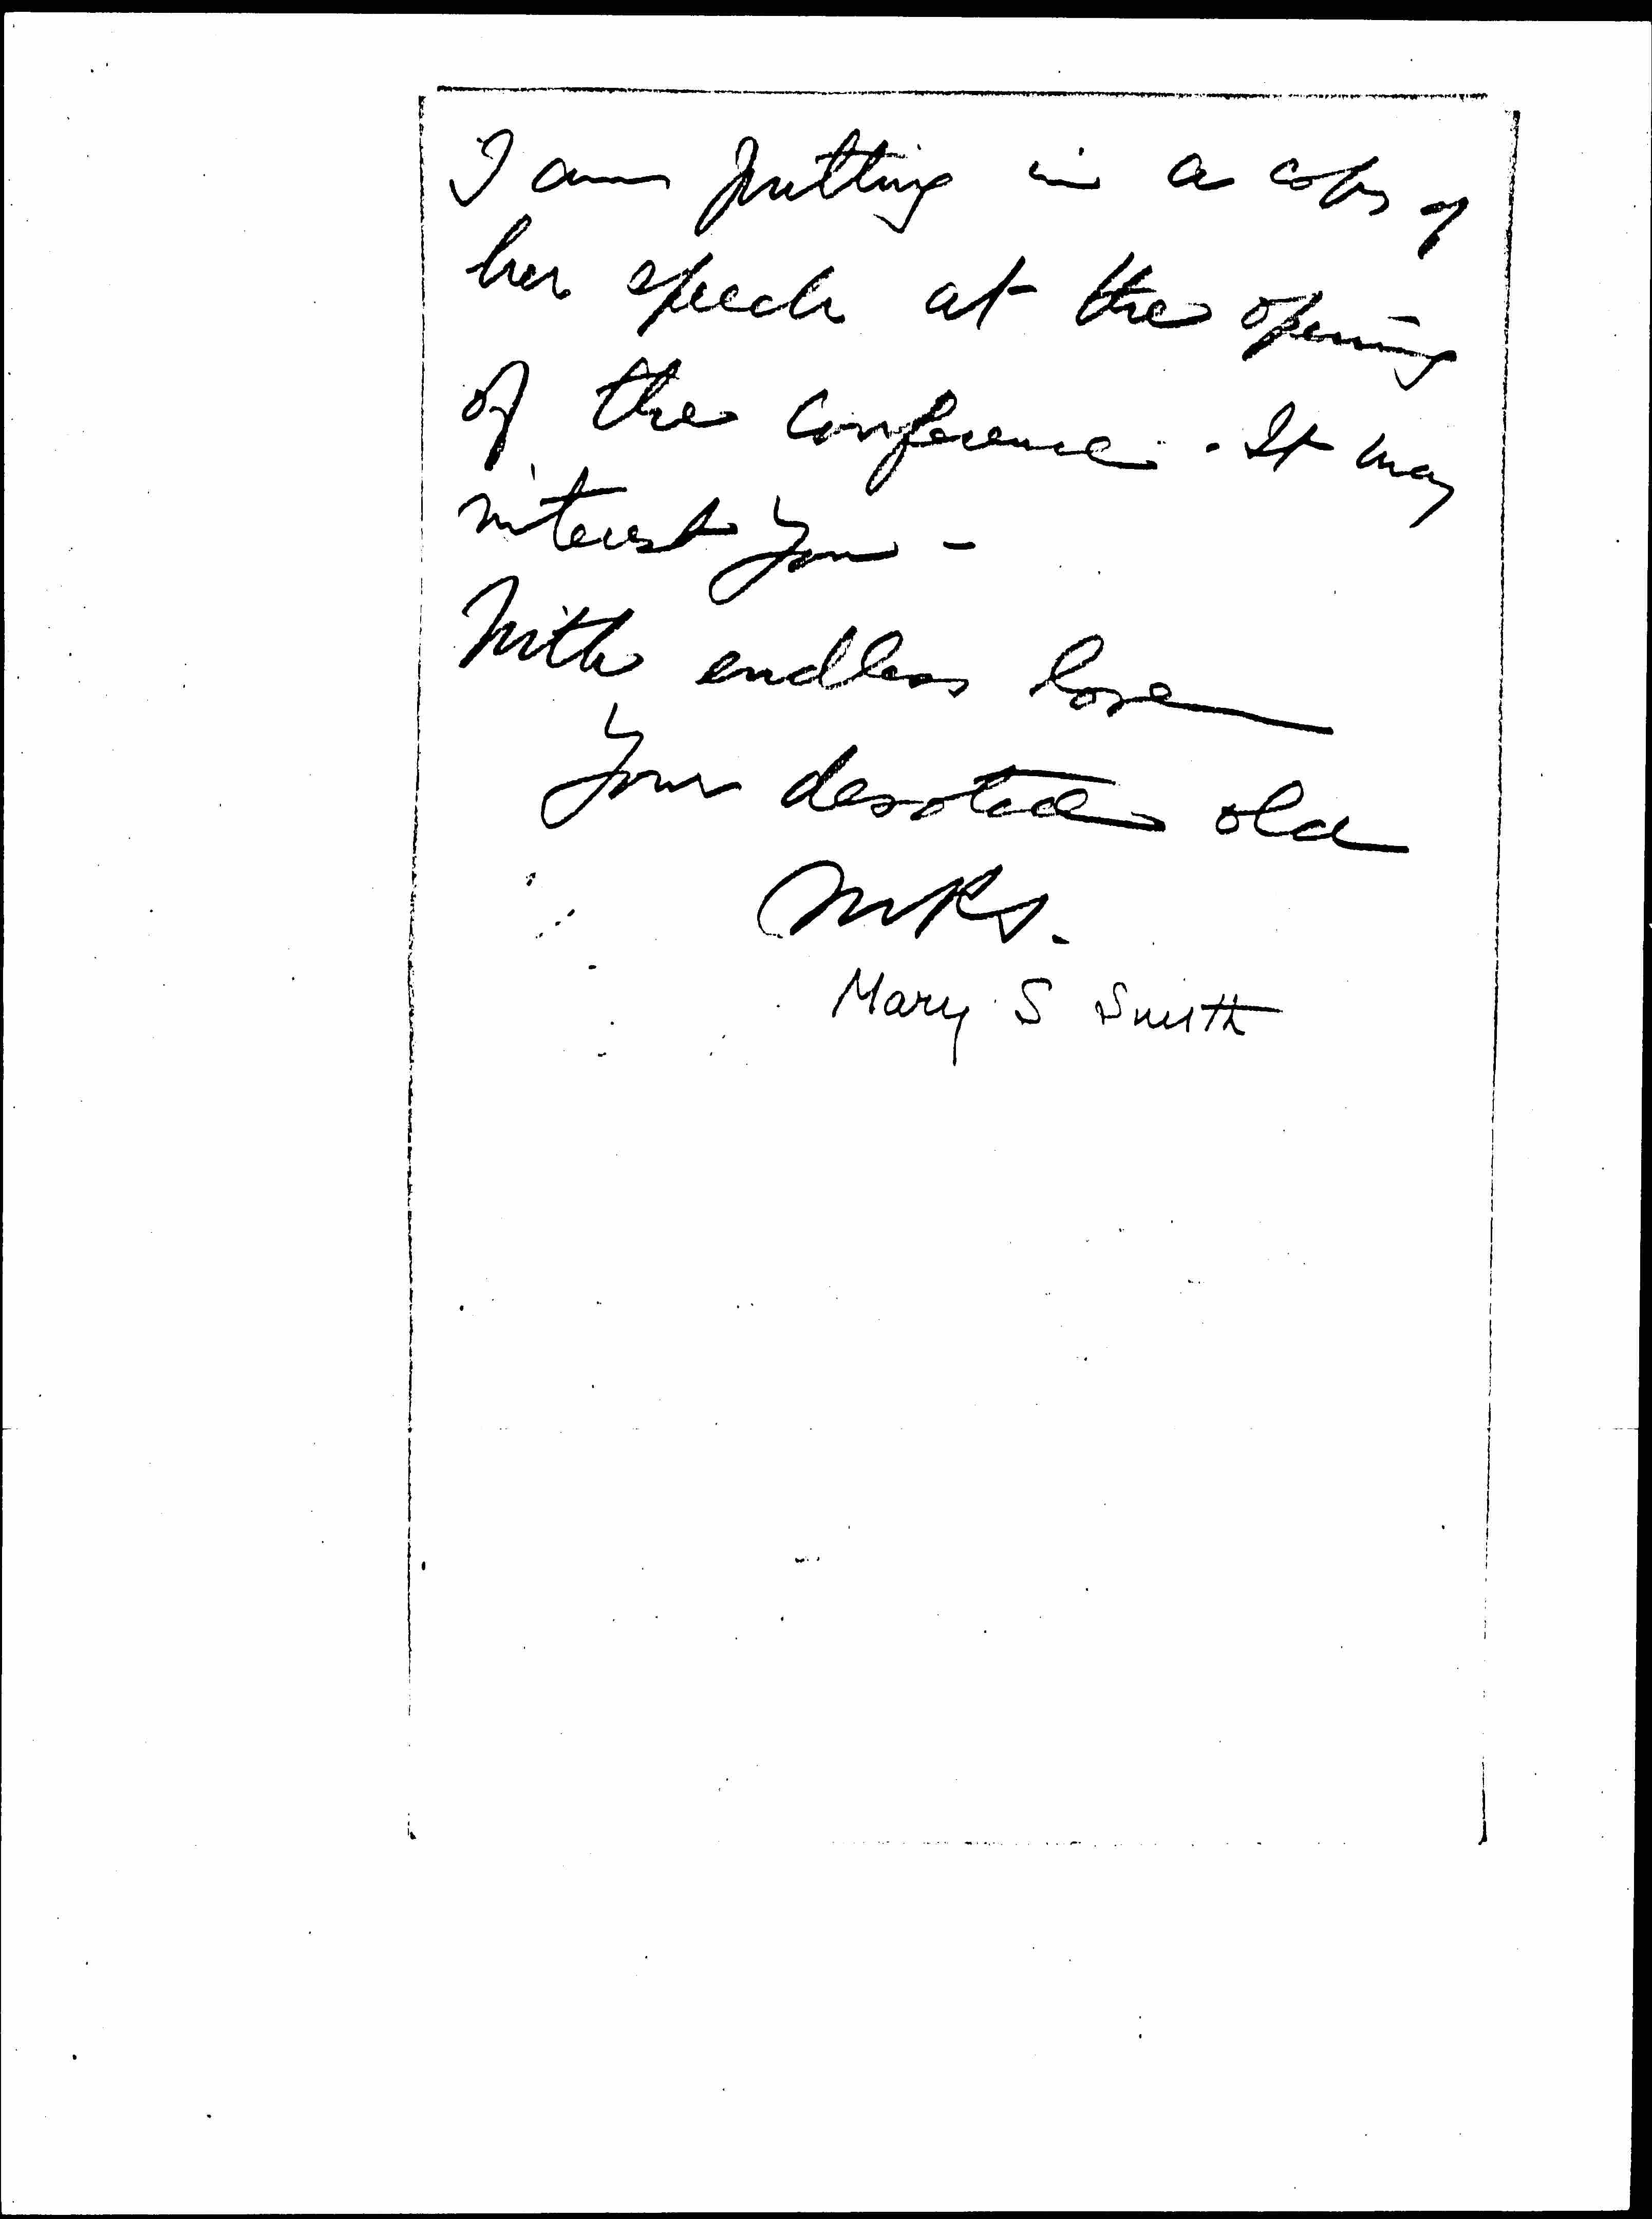 I am putting in a copy of
her speech at the opening
of the conference. It may
interest you -
With endless love
Your devoted old
MRS.
Mary S Smith